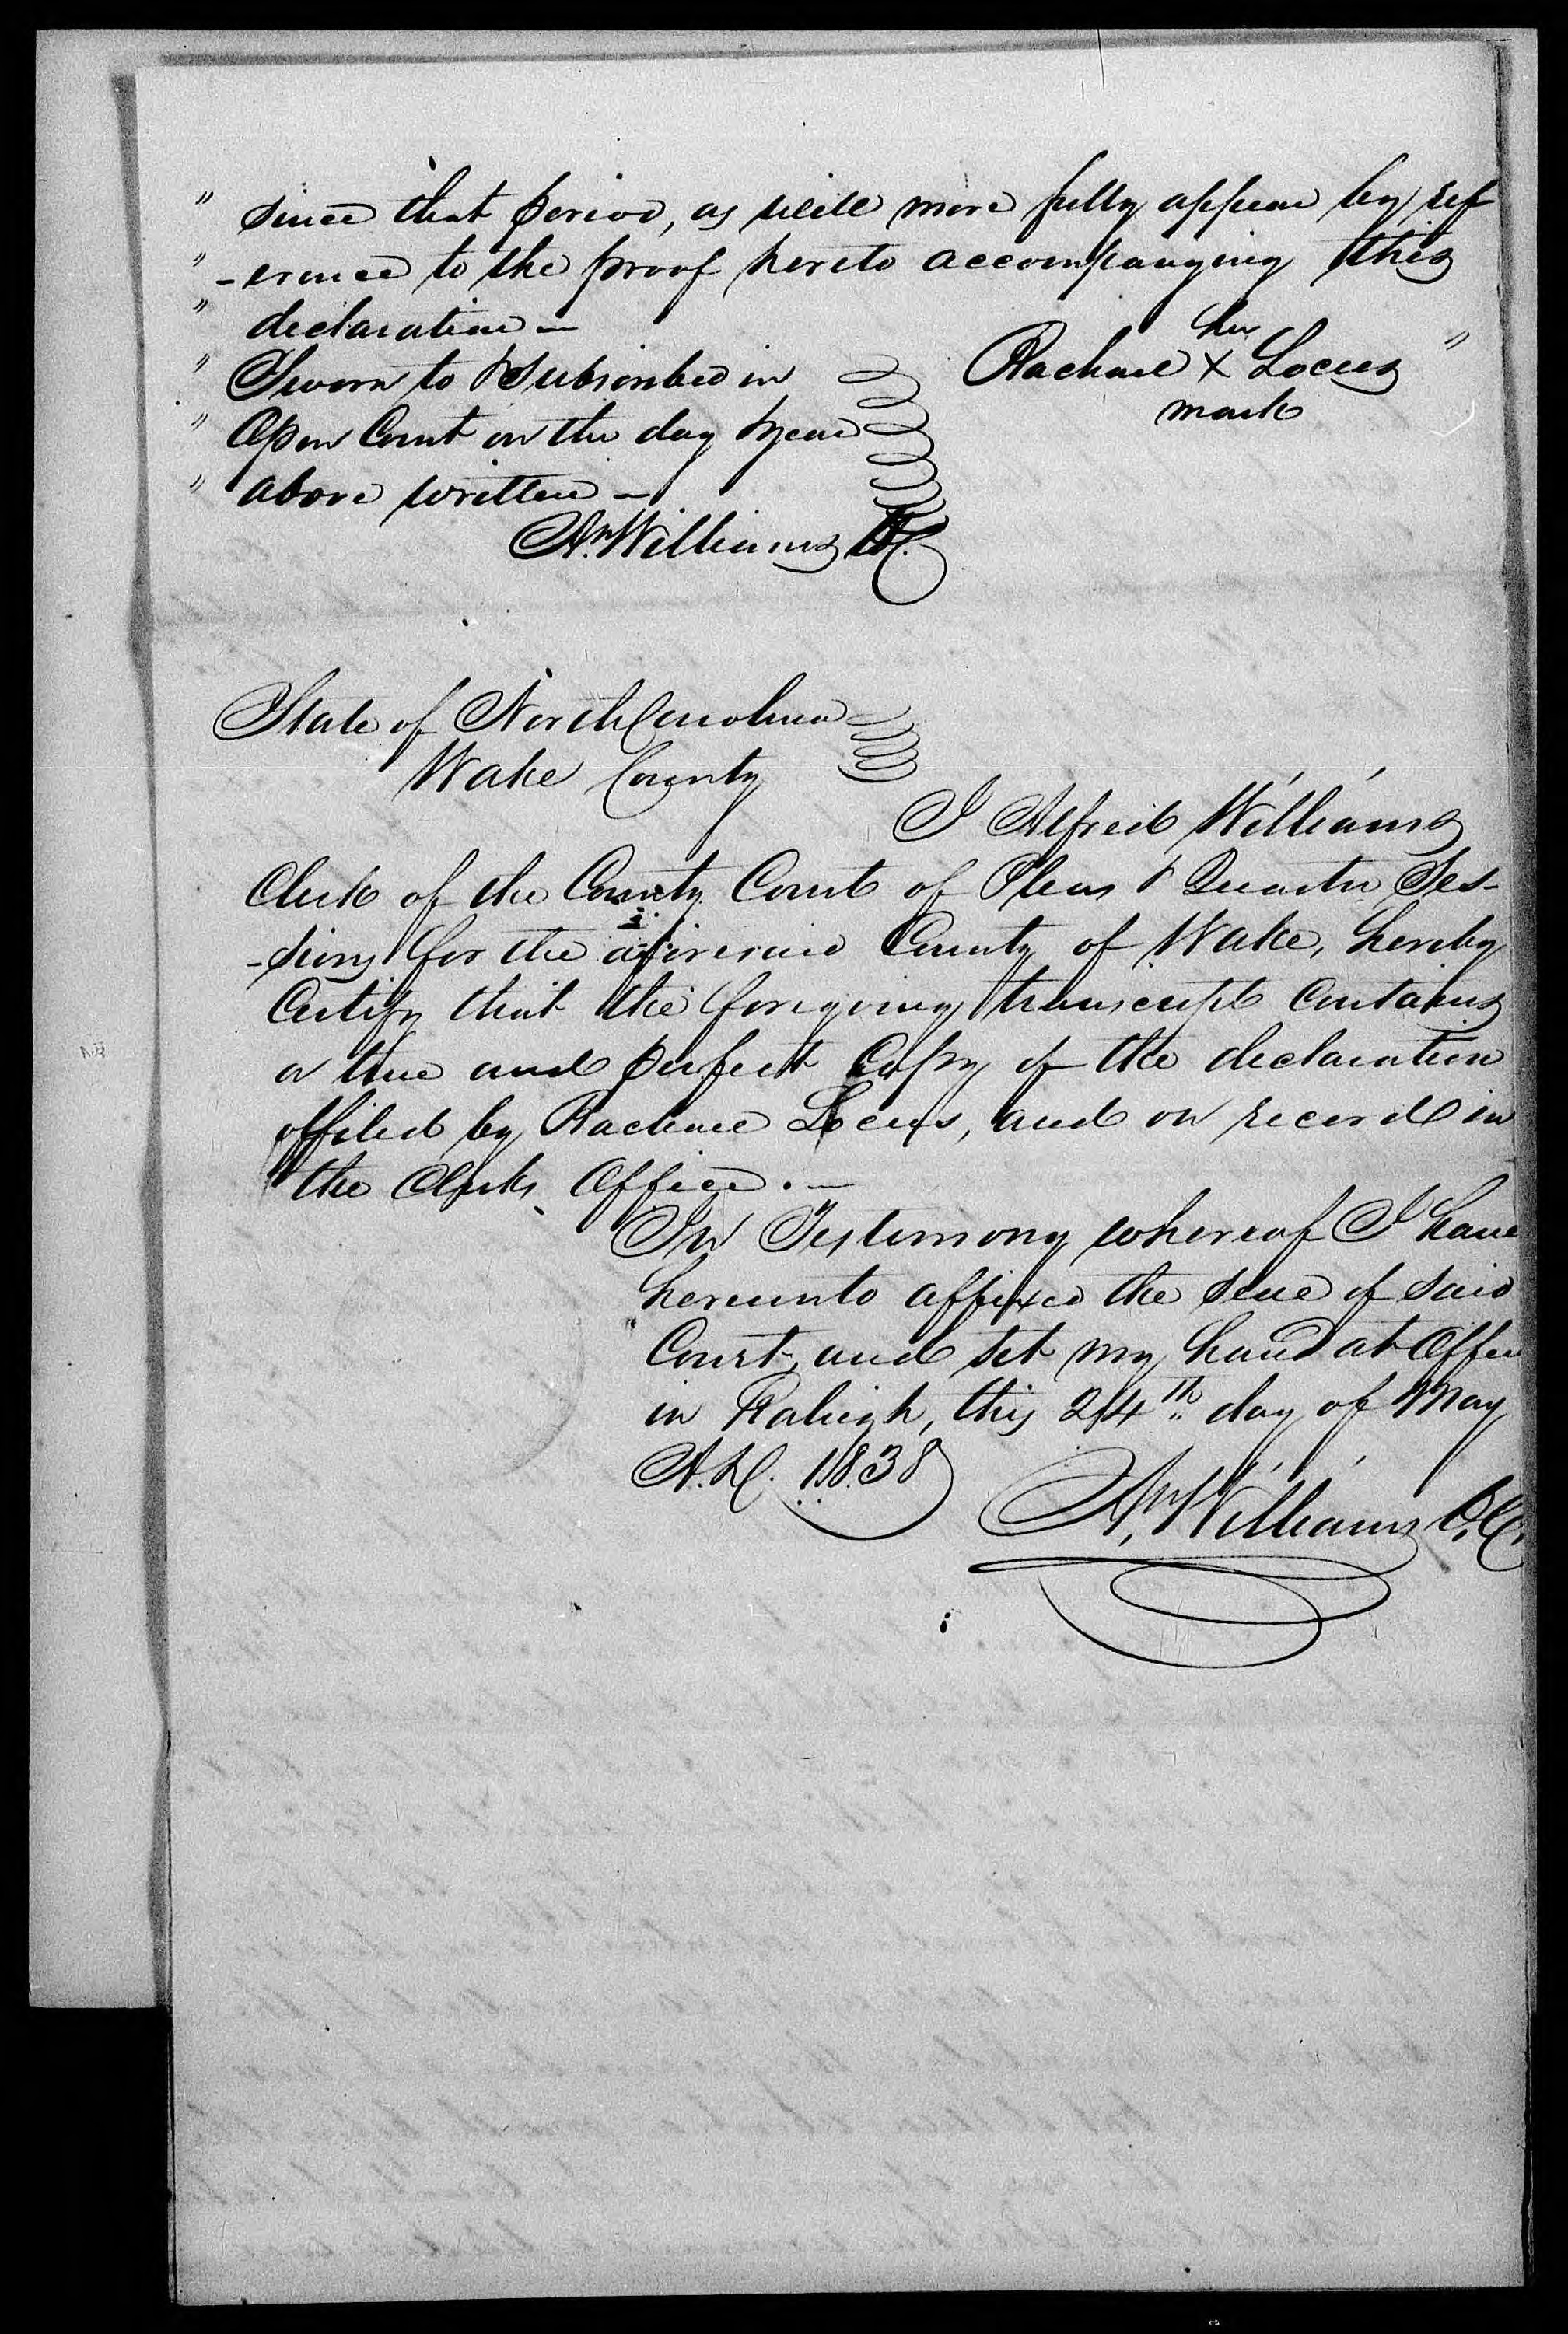 " since that period, as will more fully appear by ref
" -erence to the proof hereto accompanying this
" declaration —
her
" Sworn to & subscribed in Rachael X Locus "
mark
" Open Court on the day & year
" above written —
An. Williams CC.
State of North Carolina
Wake County
I Alfred Williams
Clerk of the County Court of Pleas & Quarter Ses-
-sions for the aforesaid County of Wake, hereby
Certify that the foregoing transcript contains
a true and perfect Copy of the declaration
affiled by Rachael Locus, and on record in
the Clerks Office. —
In Testimony whereof I have
hereunto affixed the seal of said
Court, and set my hand at Office
in Raleigh, this 24th day of May
A.D. 1838
An. Williams C.C.